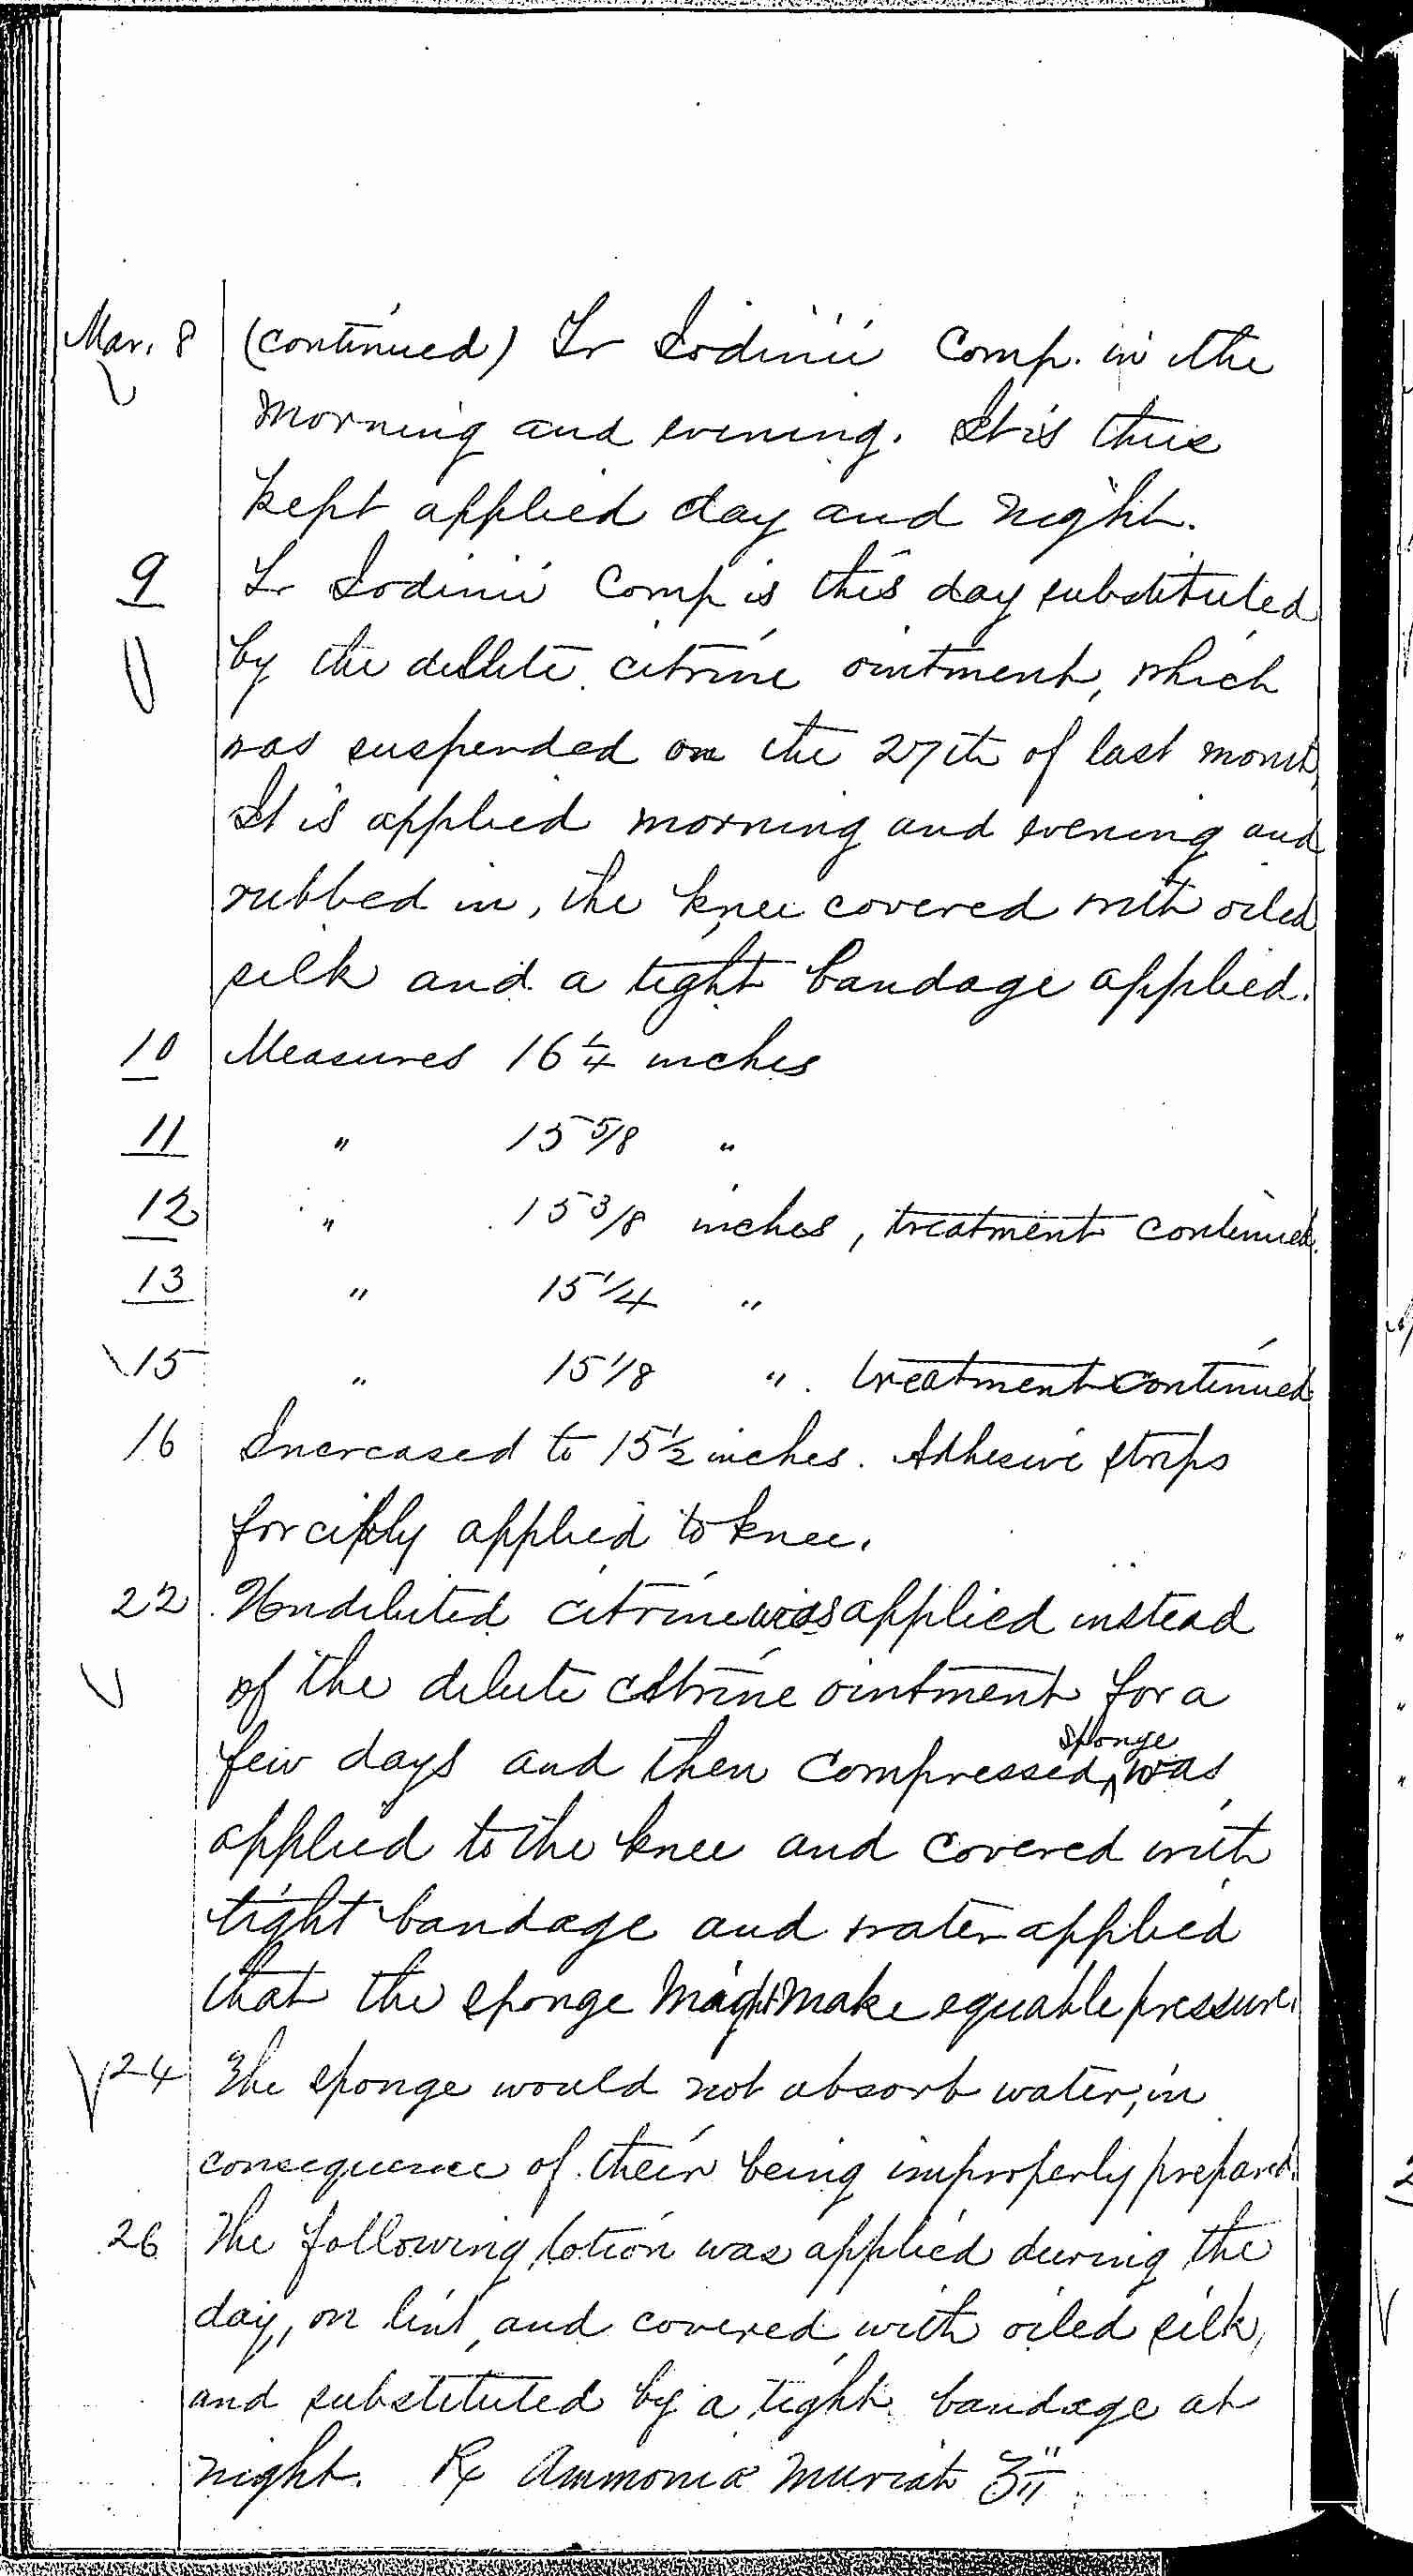 Mar. 8 (continued) Tr Iodinii Comp. in the
morning and evening. It is thus
kept applied day and night.
9 Tr Iodinii Comp is this day substituted
by the dilute citrine ointment, which
was suspended on the 27th of last month,
It is applied morning and evening and
rubbed in, the knee covered with oiled
silk and a tight bandage applied.
10 Measures 16 1/4 inches
11 " 15 5/8 "
12 " 15 3/8 inches, treatment continued.
13 " 15 1/4 "
15 " 15 1/8 " . treatment continued
16 Increased to 15 1/2 inches. Adhesive strips
forcibly applied to knee.
22 Undiluted citrine was applied instead
of the dilute citrine ointment for a
few days and then compressed ^sponge was
applied to the knee and covered with
tight bandage and water applied
that the sponge might make equable pressure.
24 The sponge would not absorb water, in
consequence of their being improperly prepared.
26 The following lotion was applied during the
day, on lint, and covered with oiled silk,
and substituted by a tight bandage at
night. ℞ Ammoniæ Muriat ʒii